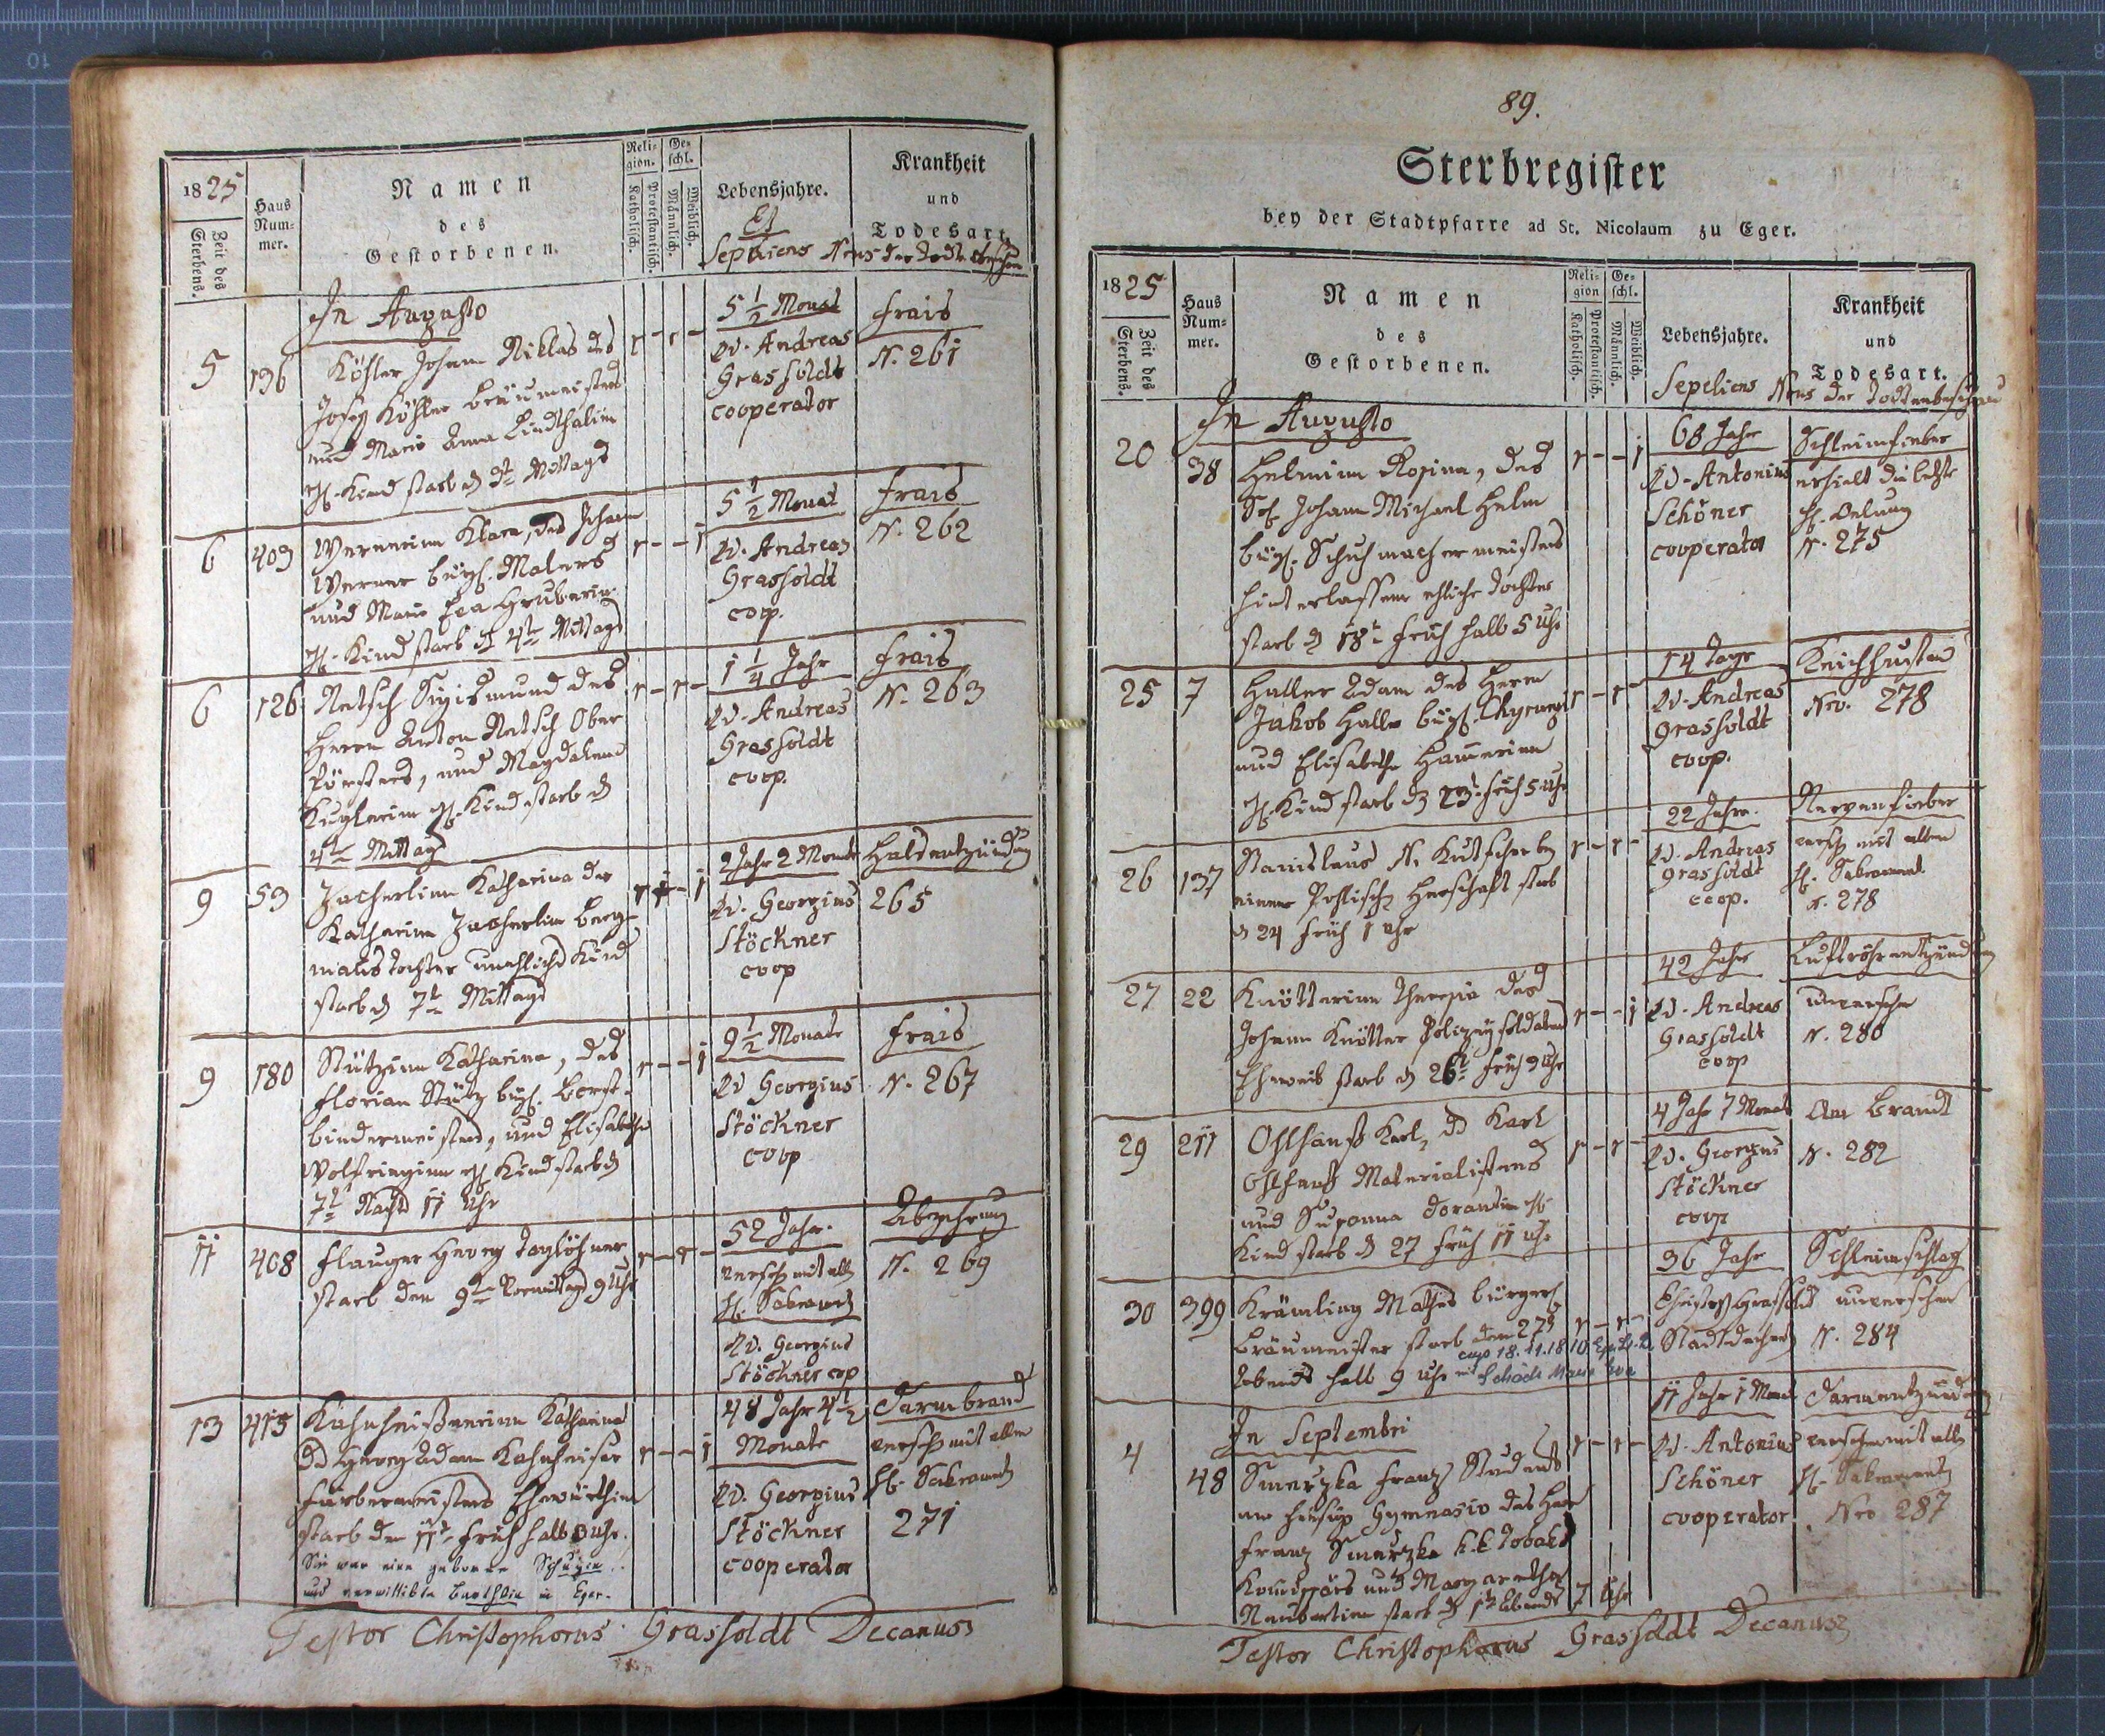 1825
Haus
Num=
mer.
Zeit des
Sterbens.
Namen
des
Gestorbenen.
Reli=
gion.
Katholisch.
Protestantisch.
Ge=
schl.
Männlich.
Weiblich.
Lebensjahre.
Et
Sepeliens
Krankheit
und
Todesart.
Nrus der Todtenbeschau
In Augusto
5
136
Köhler Johann Niklas des
Josef Köhler Bräumeisters
und Maria Anna Lindthalin
Kind starb d Mittags
5 1/2 Monat
Ad. Andreas
Grassoldt
cooperator
Frais
N. 261
6
403
Wernerinn Klara, des Johann
Werner bürgl. Malers
und Maria Eva Gruberin
Kind starb d 4te Mittags
5 1/2 Monat
Ad. Andreas
Grassoldt
coop.
Frais
N. 262
6
126
Netsch Sigismund des
Herrn Anton Netsch Ober
försters, und Magdalena
Kuglerinn Kind starb d
4te Mittag
1 1/4 Jahr
Ad. Andreas
Grassoldt
coop.
Frais
N. 263
9
53
Zucherlinn Katharina der
Katharina Zucherlin Berg=
manns tochter unehliches Kind
starb d 7t Mittags
2 Jahr 2 Monate
Ad. Georgius
Stöckner
coop
Halsentzündung
265
9
180
Stützinn Katharina, des
Florian Stütz bürgl.
bindermeisters, und Elisabetha
Kind starb d
7te Nachts 11 Uhr
9 1/2 Monate
Ad Georgius
Stöckner
coop
Frais
N. 267
11
408
Flauger Georg Taglöhner
starb den 9te Vormittag 9 Uhr
52 Jahr.
versch mit alln
hl. Sakrament
Ad. Georgius
Stöckner cop
Abzehrung
N. 269
13
415
Kahnheißnerinn Katharina
des Georg Adam Kahnheiser
Färbermeisters Ehewirthin
starb den 11t früh halb 3 Uhr.
Sie war eine geborene Schugin
und verwittibte Barthlin in Eger.
48 Jahr 4 1/2
Monate
Ad. Georgius
Stöckner
cooperator
Darmbrand
versch mit allen
hl. Sakrament
271
Testor Christophorus Grassoldt Decanus
89.
Sterbregister
bey der Stadtpfarre ad St. Nicolaum zu Eger.
1825
Haus
Num=
mer.
Zeit des
Sterbens.
Namen
des
Gestorbenen.
Reli=
gion
Katholisch.
Protestantisch.
Ge=
schl.
Männlich.
Weiblich.
Lebensjahre.
Sepeliens
Krankheit
und
Todesart.
Nrus der Todtenbeschau
In Augusto
20
38
Helminn Rosina, des
Johann Michael Helm
bürgl. Schuhmachermeisters
hinterlassene ehliche Tochter
starb d 18t früh halb 5 Uhr
68 Jahr
Ad. Antonius
Schöner
cooperator
Schleimfieber
erhielt die letzte
hl. Oelung
N. 275
25
7
Haller Adam des Herrn
Jakob Haller bürgl. Chyrurgs
und Elisabetha Hamerinn
Kind starb d 23t früh 5 Uhr
14 Tage
Ad. Andreas
Grassoldt
coop.
Keichhusten
Nro. 278
26
137
Stanislaus N. Kutscher bey
einer Pohlisch Herschaft starb
d 24 früh 1 Uhr
22 Jahre.
Ad. Andreas
Grassoldt
coop.
Nervenfieber
versch mit allen
hl. Sakrament
N. 278
27
22
Knötterinn Theresia des
Johann Knötter Polizeysoldaten
Eheweib starb d 26t früh 9 Uhr
42 Jahr
Ad. Andreas
Grassoldt
coop
Luftröhrentzündung
unversehen
N. 280
29
211
Ohlhanß Karl, des Karl
Ohlhanß Materialistens
und Susanna
Kind starb d 27 früh 11 Uhr
4 Jahr 7 Monat
Ad. Georgius
Stöckner
coop
Am Brandt
N. 282
30
399
Krämling Mathes bürgerl
Bräumeister starb den 27t
Abends halb 9 Uhr
36 Jahr
Christoph Grassoldt
Stadtdechant
Schleimschlag
unversehen
N. 284
In Septembri
4
48
Smerzka Franz Student
am hiesigen Gymnasio des Herrn
Franz Smerzka k.k Tobak
und Margaretha
Neubertinn starb d 1te Abends 7 Uhr
11 Jahr 1 Monat
Ad. Antonius
Schöner
cooperator
Darmentzündung
versehen mit alln
hl. Sakrament
Nro 287
Testor Christophorus Grassoldt Decanus